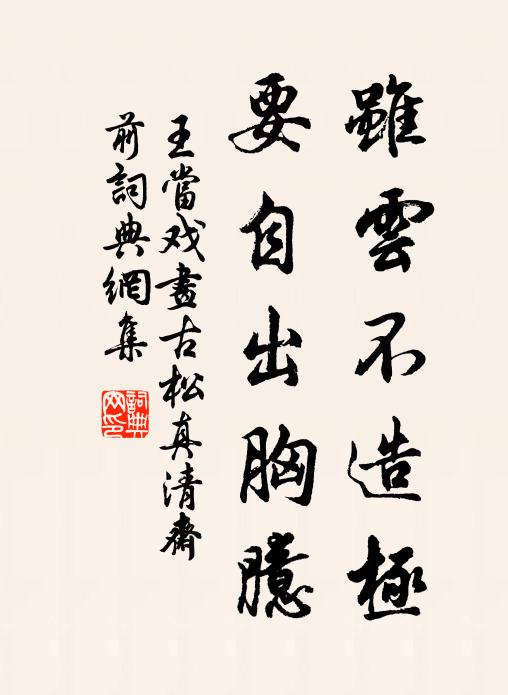 雖雲不造極
要自出胸臆
王當戏畫古松真清齋
前詞典網集
詞典网印